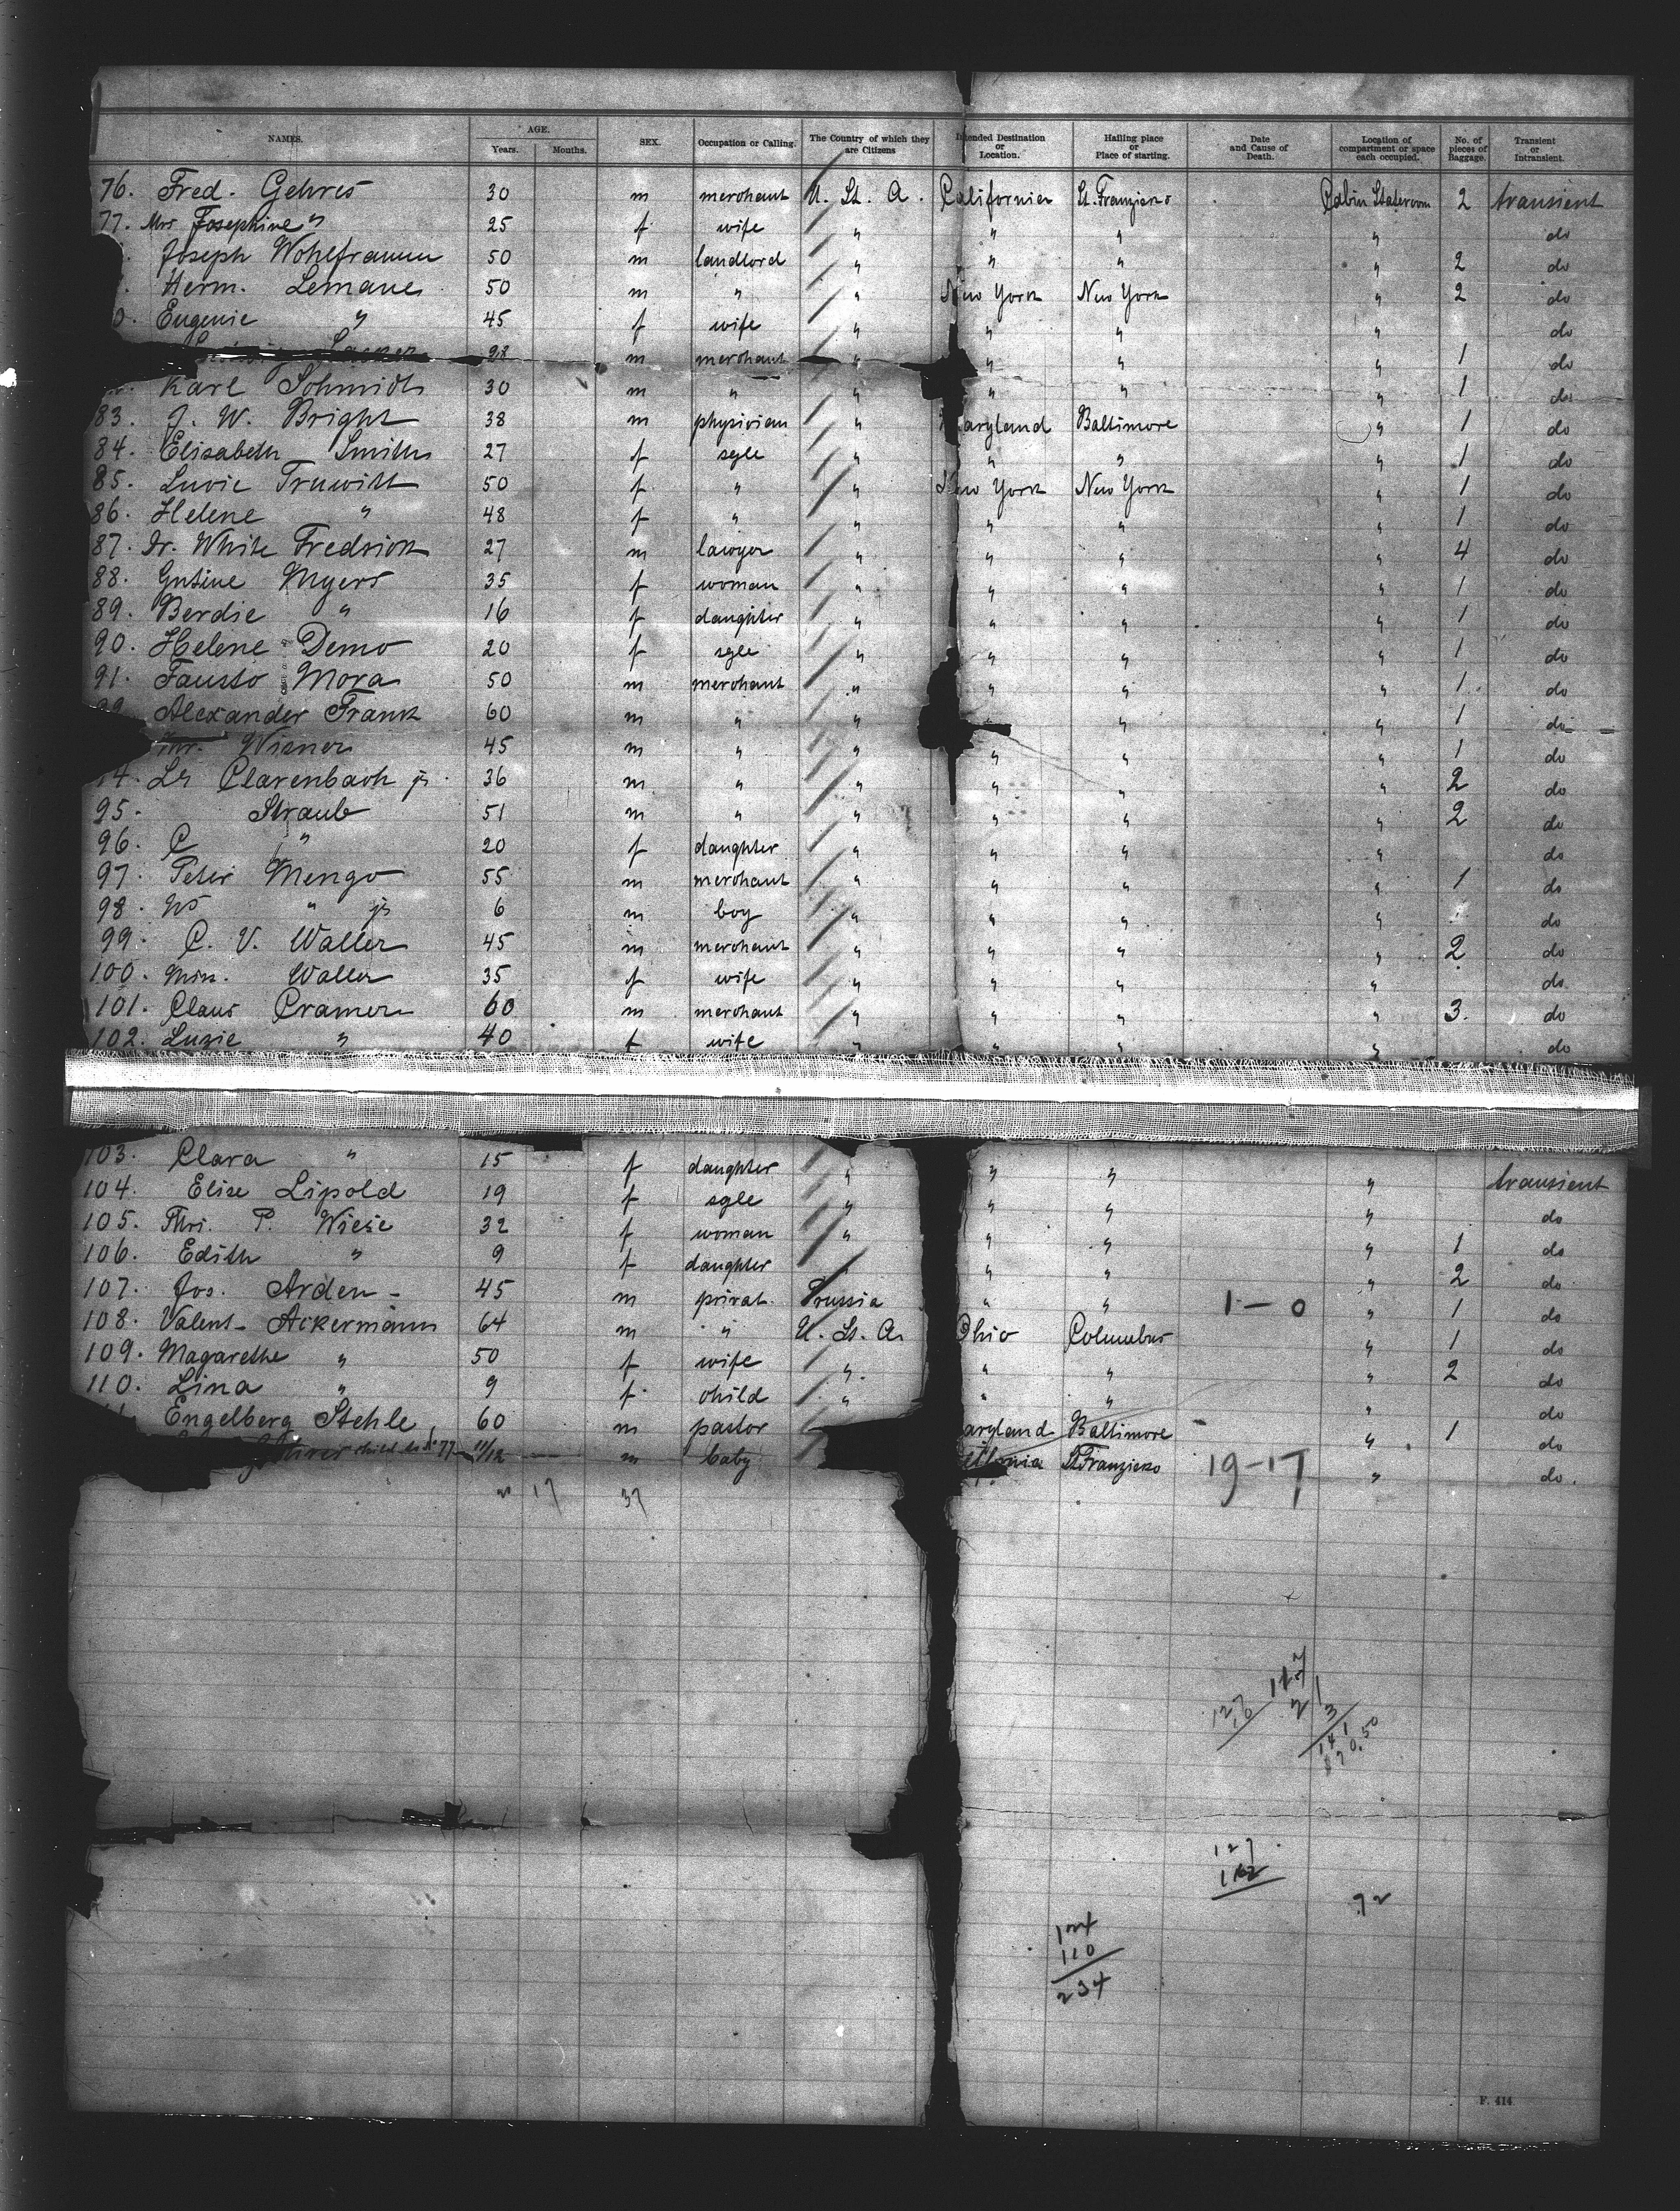 NAMES. AGE. Years. Months. SEX. Occupation or Calling. The Country of which they are Citizens Intended Destination or Location. Hailing place or Place of starting. Date and Cause of Death. Location of compartment or space each occupied. No. of pieces of Baggage. Transient or Intransient.
76. Fred. Gehres 30 m merchant U. St. A. California St. Franzisko Cabin Stateroom 2 transient
77. Mrs Josephine " 25 f wife " " " " do
Joseph Wohlframm 50 m landlord " " " " 2 do
Herm. Lemanes 50 m " " New York New York " 2 do
0. Eugenie " 45 f wife " " " " do
m merchant " " " " 1 do
Karl Schmidt 30 m " " " " " 1 do
83. J. W. Bright 38 m physician " aryland Baltimore " 1 do
84. Elisabeth Smith 27 f sgle " " " " 1 do
85. Lucie Truwitt 50 f " " New York New York " 1 do
86. Helene " 48 f " " " " " 1 do
87. Dr. White Fredrick 27 m lawyer " " " " 4 do
88. Gustine Myers 35 f woman " " " " 1 do
89. Berdie " 16 f daughter " " " " 1 do
90. Helene Demo 20 f sgle " " " " 1 do
91. Fausto Mora 50 m merchant " " " " 1 do
Alexander Frank 60 m " " " " " 1 do
Wisner 45 m " " " " " 1 do
94. Clarenbach jr. 36 m " " " " " 2 do
95. Straub 51 m " " " " " 2 do
96. C " 20 f daughter " " " " do
97. Peter Mengo 55 m merchant " " " " 1 do
98. " jr 6 m boy " " " " do
99. C. V. Waller 45 m merchant " " " " 2 do
100. Waller 35 f wife " " " " do
101. Claus Cramer 60 m merchant " " " " 3. do
102. Luzie " 40 f wife " " " " do
103. Clara " 15 f daughter " " " " transient
104. Elise Lipold 19 f sgle " " " " do
105. P. Wiese 32 f woman " " " " 1 do
106. Edith " 9 f daughter " " " 2 do
107. Jos. Arden 45 m privat. Prussia " " 1-0 " 1 do
108. Valent. Ackermann 64 m " U. St. A. Ohio Columbus " 1 do
109. Magarethe " 50 f wife " " " " 2 do
110. Lina " 9 f. child " " " " do
Engelberg Stehle 60 m pastor aryland Baltimore " 1 do
child to № 77 11/12 m baby St Franzisko 19-17 " do.
17 37
117
2 3
141
70.50
127
112
92
124
110
234
F. 414